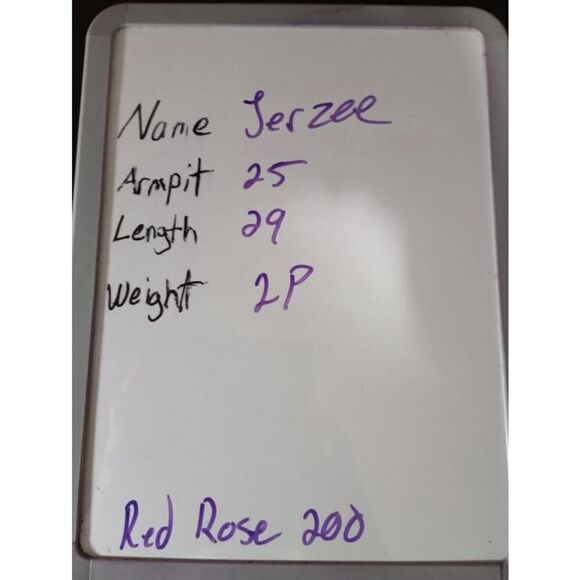 Name Jerzee
Armpit 25
Length 29
Weight 2P
Red Rose 200